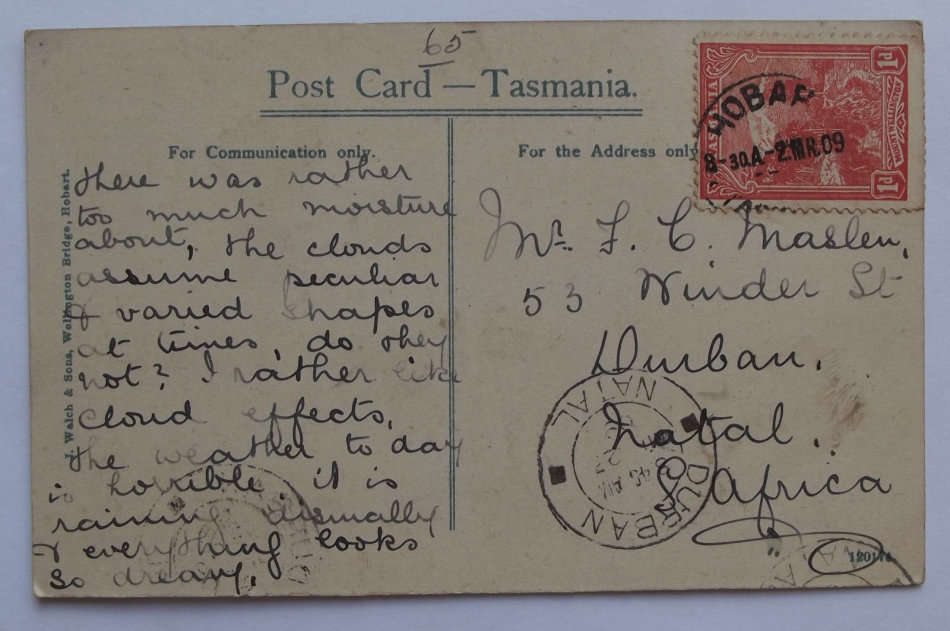 65
Post Card — Tasmania.
For Communication only.
For the Address only
J. Walch & Sons, Wellington Bridge, Hobart.
there was rather
too much moisture
about, the clouds
assume peculiar
& varied shapes
at times, do they
not? I rather like
cloud effects.
the weather to day
is horrible. it is
raining dismally
& everything looks
so dreary.
1d
HOBAR
8-30A-2MR.09
1d
Mr. F. C. Maslen,
53 Winder St
Durban.
Natal.
S. Africa
DURBAN
NATAL
45 AM